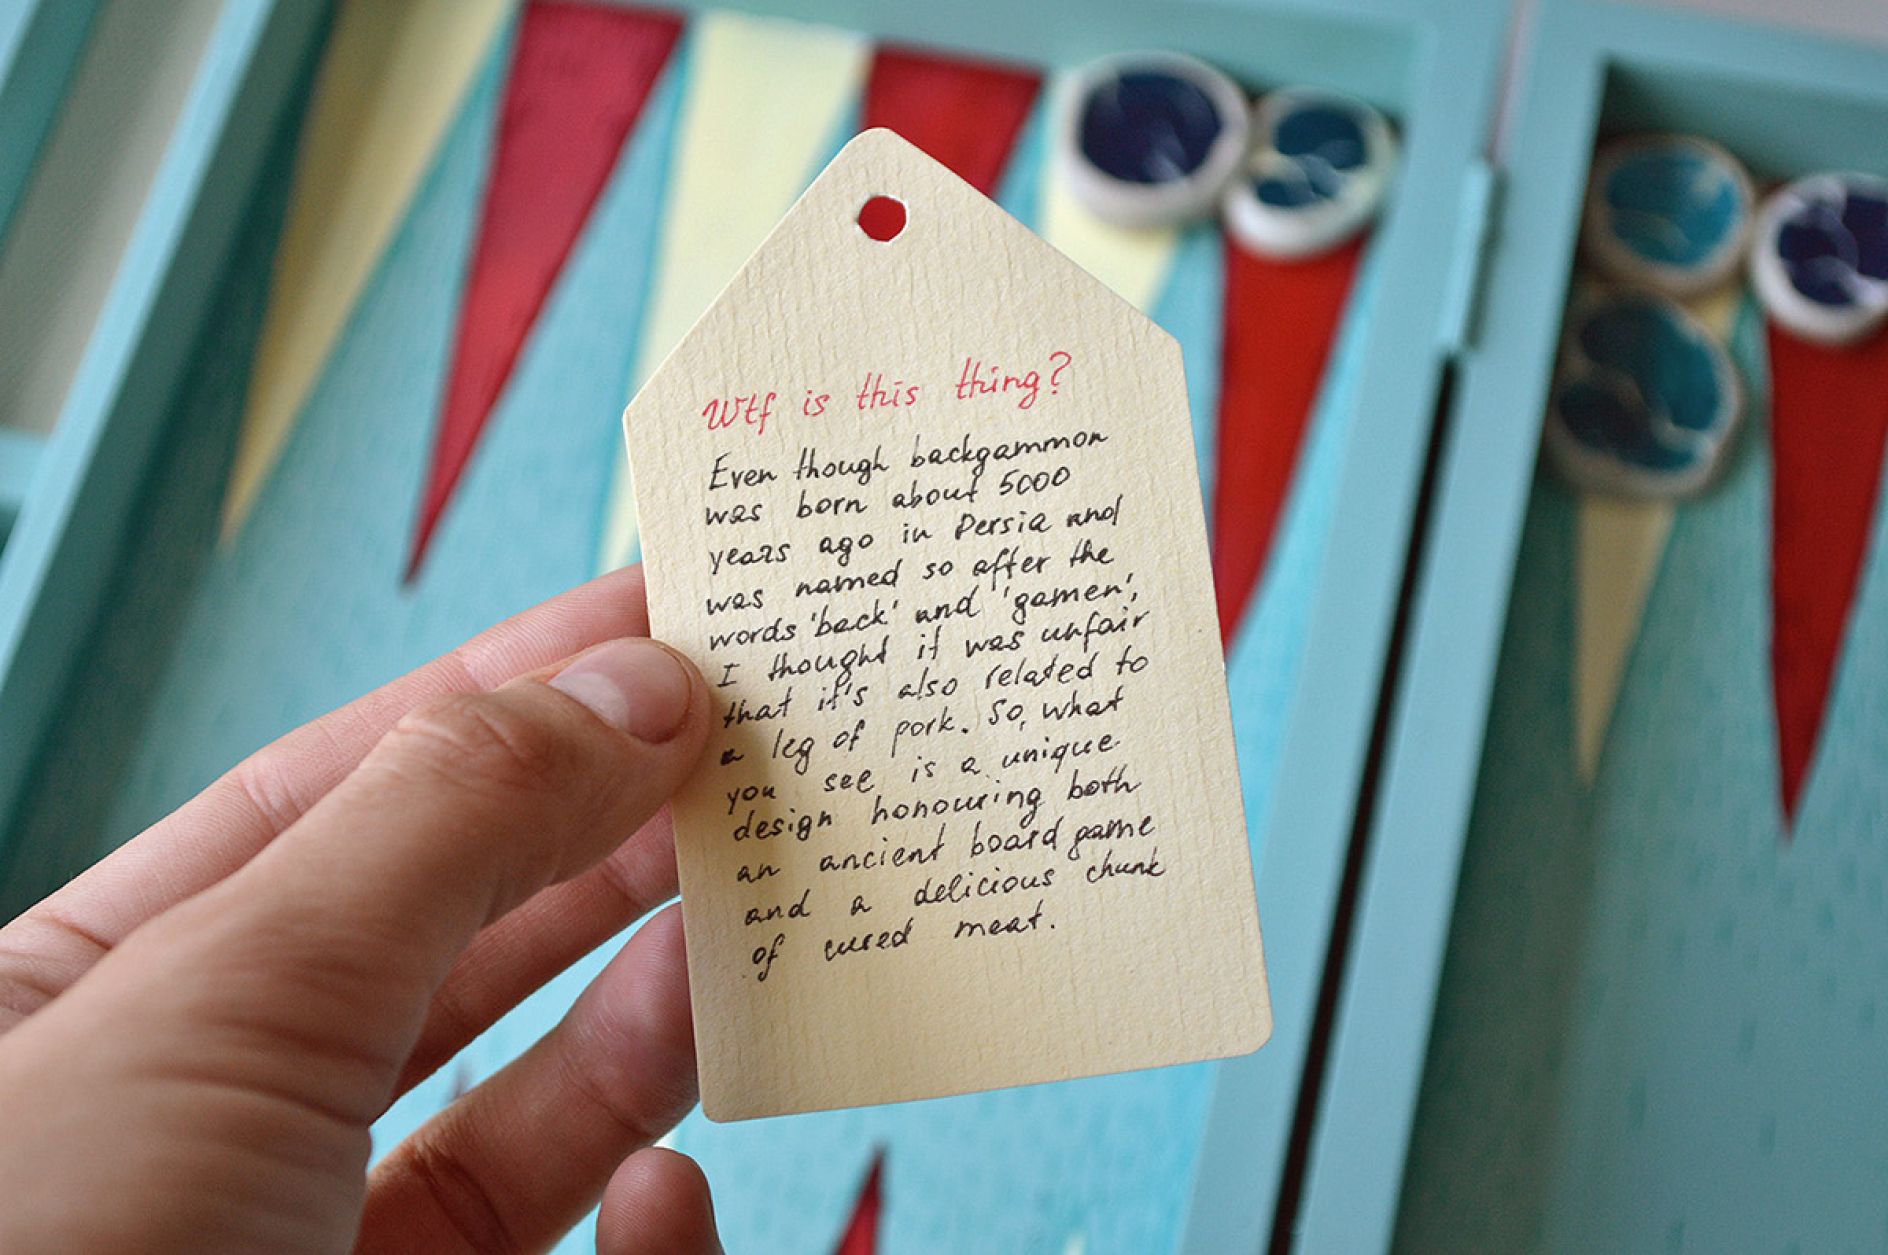 Wtf is this thing?
Even though backgammon
was born about 5000
years ago in Persia and
was named so after the
words 'back' and 'gamen',
I thought it was unfair
that it's also related to
a leg of pork. So, what
you see is a unique
design honouring both
an ancient board game
and a delicious chunk
of cured meat.